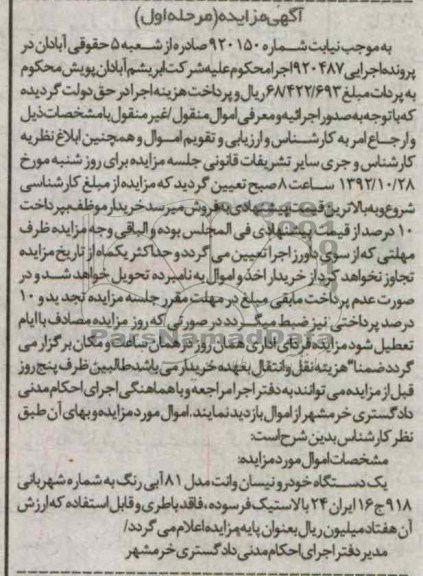 آگهی مزایده(مرحله اول)
به موجب نیابت شماره ۹۲۰۱۵۰ صادره از شعبه ۵ حقوقی آبادان در
پرونده اجرایی ۹۲۰۴۸۷ اجرا محکوم علیه شرکت ابریشم آبادان پویش محکوم
به پرداخت مبلغ ۶۸/۴۲۲/۶۹۳ ریال و پرداخت هزینه اجرا در حق دولت گردیده
که با توجه به صدور اجرائیه و معرفی اموال منقول /غیر منقول با مشخصات ذیل
و ارجاع امر به کارشناس و ارزیابی و تقویم اموال و همچنین ابلاغ نظریه
کارشناس و جری سایر تشریفات قانونی جلسه مزایده برای روز شنبه مورخ
۱۳۹۲/۱۰/۲۸ ساعت ۸ صبح تعیین گردید که مزایده از مبلغ کارشناسی
شروع و به بالاترین قیمت پیشنهادی به فروش میرسد خریدار موظف بپرداخت
۱۰ درصد از قیمت پیشنهادی فی المجلس بوده و الباقی وجه مزایده ظرف
مهلتی که از سوی داورز اجرا تعیین می گردد و حداکثر یکماه از تاریخ مزایده
تجاوز نخواهد کرد از خریدار اخذ و اموال به نامبرده تحویل خواهد شد و در
صورت عدم پرداخت مابقی مبلغ در مهلت مقرر جلسه مزایده تجدید و ۱۰
درصد پرداختی نیز ضبط میگردد در صورتی که روز مزایده مصادف با ایام
تعطیل شود مزایده فردای اداری همان روز در همان ساعت و مکان برگزار می
گردد ضمنا" هزینه نقل و انتقال بعهده خریدار می باشد طالبین ظرف پنج روز
قبل از مزایده می توانند به دفتر اجرا مراجعه و با هماهنگی اجرای احکام مدنی
دادگستری خرمشهر از اموال بازدید نمایند. اموال مورد مزایده و بهای آن طبق
نظر کارشناس بدین شرح است:
مشخصات اموال مورد مزایده:
یک دستگاه خودرو نیسان وانت مدل ۸۱ آبی رنگ به شماره شهربانی
۹۱۸ ج ۱۶ ایران ۲۴ با لاستیک فرسوده، فاقد باطری و قابل استفاده که ارزش
آن هفتاد میلیون ریال بعنوان پایه مزایده اعلام می گردد/
مدیر دفتر اجرای احکام مدنی دادگستری خرمشهر